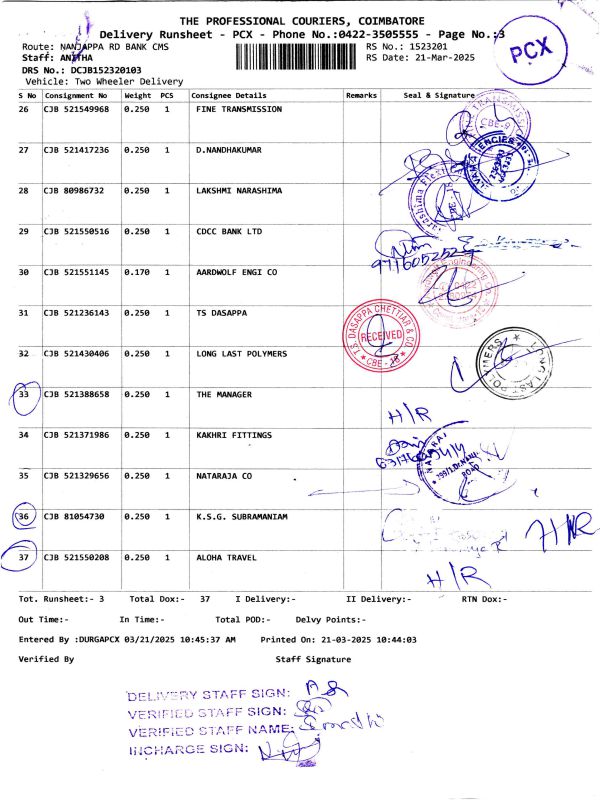 THE PROFESSIONAL COURIERS, COIMBATORE
Delivery Runsheet - PCX - Phone No.:0422-3505555 - Page No.:3
PCX
Route: NANJAPPA RD BANK CMS
RS No.: 1523201
Staff: ANITHA
RS Date: 21-Mar-2025
DRS No.: DCJB152320103
Vehicle: Two Wheeler Delivery
S No Consignment No Weight PCS Consignee Details Remarks Seal & Signature
26 CJB 521549968 0.250 1 FINE TRANSMISSION
CBE-9
27 CJB 521417236 0.250 1 D.NANDHAKUMAR
28 CJB 80986732 0.250 1 LAKSHMI NARASHIMA
29 CJB 521550516 0.250 1 CDCC BANK LTD
30 CJB 521551145 0.170 1 AARDWOLF ENGI CO
31 CJB 521236143 0.250 1 TS DASAPPA
T.S. DASAPPA CHETTIAR & CO.
RECEIVED
CBE - 18
32 CJB 521430406 0.250 1 LONG LAST POLYMERS
LONG LAST POLYMERS
33 CJB 521388658 0.250 1 THE MANAGER
H/R
34 CJB 521371986 0.250 1 KAKHRI FITTINGS
35 CJB 521329656 0.250 1 NATARAJA CO
36 CJB 81054730 0.250 1 K.S.G. SUBRAMANIAM
H/R
37 CJB 521550208 0.250 1 ALOHA TRAVEL
H/R
Tot. Runsheet:- 3 Total Dox:- 37 I Delivery:- II Delivery:- RTN Dox:-
Out Time:- In Time:- Total POD:- Delvy Points:-
Entered By :DURGAPCX 03/21/2025 10:45:37 AM Printed On: 21-03-2025 10:44:03
Verified By Staff Signature
DELIVERY STAFF SIGN:
VERIFIED STAFF SIGN:
VERIFIED STAFF NAME:
INCHARGE SIGN: